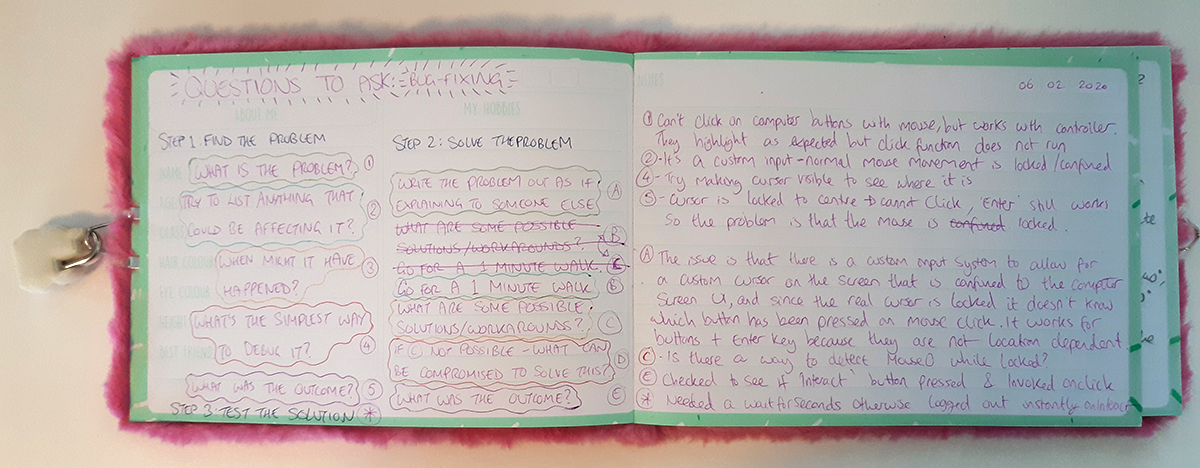 QUESTIONS TO ASK: BUG-FIXING
ABOUT ME
STEP 1 FIND THE PROBLEM
NAME
WHAT IS THE PROBLEM? 1
AGE
TRY TO LIST ANYTHING THAT
CLASS
COULD BE AFFECTING IT? 2
HAIR COLOUR
WHEN MIGHT IT HAVE
EYE COLOUR
HAPPENED? 3
HEIGHT
WHAT'S THE SIMPLEST WAY
BEST FRIEND
TO DEBUG IT? 4
WHAT WAS THE OUTCOME? 5
STEP 3 TEST THE SOLUTION *
MY HOBBIES
STEP 2: SOLVE THE PROBLEM
WRITE THE PROBLEM OUT AS IF
EXPLAINING TO SOMEONE ELSE A
WHAT ARE SOME POSSIBLE
SOLUTIONS/WORKAROUNDS? B
GO FOR A 1 MINUTE WALK. C
GO FOR A 1 MINUTE WALK B
WHAT ARE SOME POSSIBLE
SOLUTIONS/WORKAROUNDS? C
IF C NOT POSSIBLE - WHAT CAN
BE COMPROMISED TO SOLVE THIS? D
WHAT WAS THE OUTCOME? E
06 02 2020
1 Can't click on computer buttons with mouse, but works with controller.
They highlight as expected but click function does not run
2 - It's a custom input - normal mouse movement is locked/confined
4 - Try making cursor visible to see where it is
5 - Cursor is locked to centre + cannot click, 'Enter' still works
So the problem is that the mouse is confined locked.
A The issue is that there is a custom input system to allow for
a custom cursor on the screen that is confined to the computer
screen UI, and since the real cursor is locked it doesn't know
which button has been pressed on mouse click. It works for
buttons + Enter key because they are not location dependent.
C - Is there a way to detect Mouse0 while locked?
E Checked to see if 'Interact' button pressed & Invoked onclick
* Needed a waitforseconds otherwise logged out instantly on interact